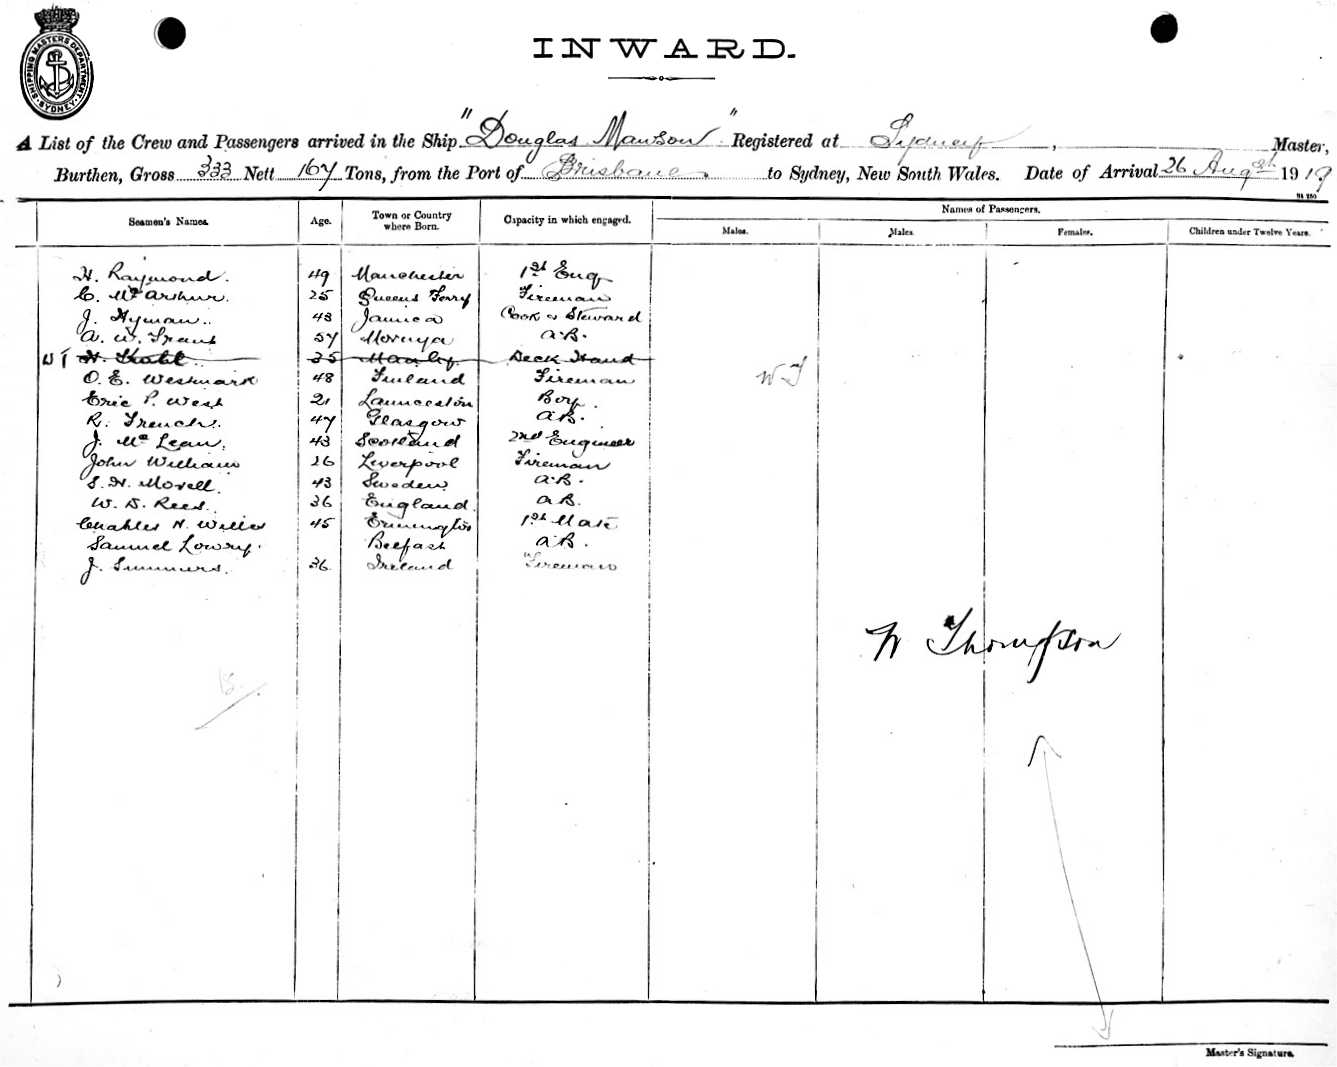 SHIPPING MASTERS DEPARTMENT SYDNEY
INWARD.
A List of the Crew and Passengers arrived in the Ship "Douglas Mawson" Registered at Sydney, Master,
Burthen, Gross 333 Nett 167 Tons, from the Port of Brisbane to Sydney, New South Wales. Date of Arrival 26 Augst 1919
Names of Passengers.
Seamen's Names. Age. Town or Country where Born. Capacity in which engaged. Males. Males. Females. Children under Twelve Years.
H. Raymond. 49 Manchester 1st Eng
C. McArthur. 25 Queens Ferry Fireman
J. Hyman. 43 Jamica Cook & Steward
A. W. Grant 57 Moruya A.B.
35 Manly Deck Hand
O. E. Westmark 48 Finland Fireman
Eric P. West 21 Launceston Boy.
R. French. 47 Glasgow A.B.
J. McLean. 43 Scotland 2nd Engineer
John William 26 Liverpool Fireman
S. H. Morell. 43 Sweden A.B.
W. D. Rees. 36 England. A.B.
Charles N. Willis 45 1st Mate
Samuel Lowry. Belfast A.B.
J. Summers. 36 Ireland Fireman
W Thompson
Master's Signature.